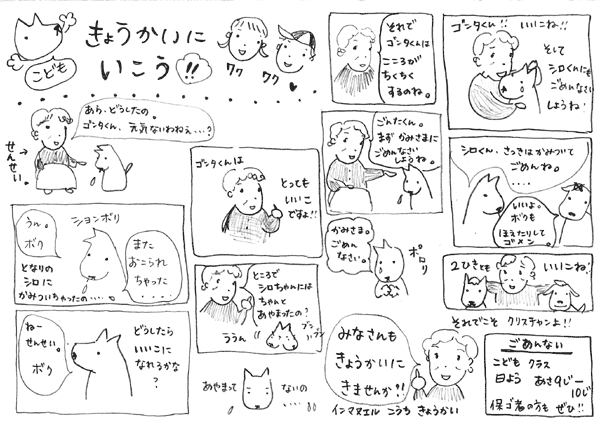 きょうかいに
いこう!!
こども
ワク
ワク
せんせい。
あら、どうしたの。
ゴンタくん、元気ないわねぇ…?
ションボリ
うん。
ボク
となりの
シロに
かみついちゃったの・・・
また
おこられ
ちゃった
・・・・・
ねー
せんせい。
ボク
どうしたら
いいこに
なれるかな
?
ゴンタくんは
とっても
いいこ
ですよ!!
ところで
シロちゃんには
ちゃんと
あやまったの?
ううん
ブン
ブン
あやまって
ないの
・・・・
それで
ゴンタくんは
こころが
ちくちく
するのね。
ごんたくん。
まず かみさまに
ごめんなさい
しようね。
かみさま。
ごめん
なさい。
ポロリ
みなさんも
きょうかいに
きませんか?!
インマヌエル こうち きょうかい
ゴンタくん!! いいこね!!
そして
シロくんにも
ごめんなさい
しようね!
シロくん、さっきはかみついて
ごめんね。
・・・・
いいよ。
ボクも
ほえたりして
ゴメン。
2ひきとも
いいこね!
それでこそ クリスチャンよ!!
ごあんない
こども クラス
日よう あさ9じー
10じ
保ゴ者の方も ぜひ!!